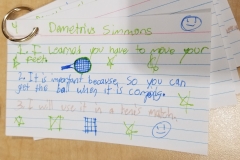 Demetrius Simmons
1. I Learnd you have to move your
feet.
2. It is important because so you can
get the ball when it is coming.
3. I will use it in a tenis match.